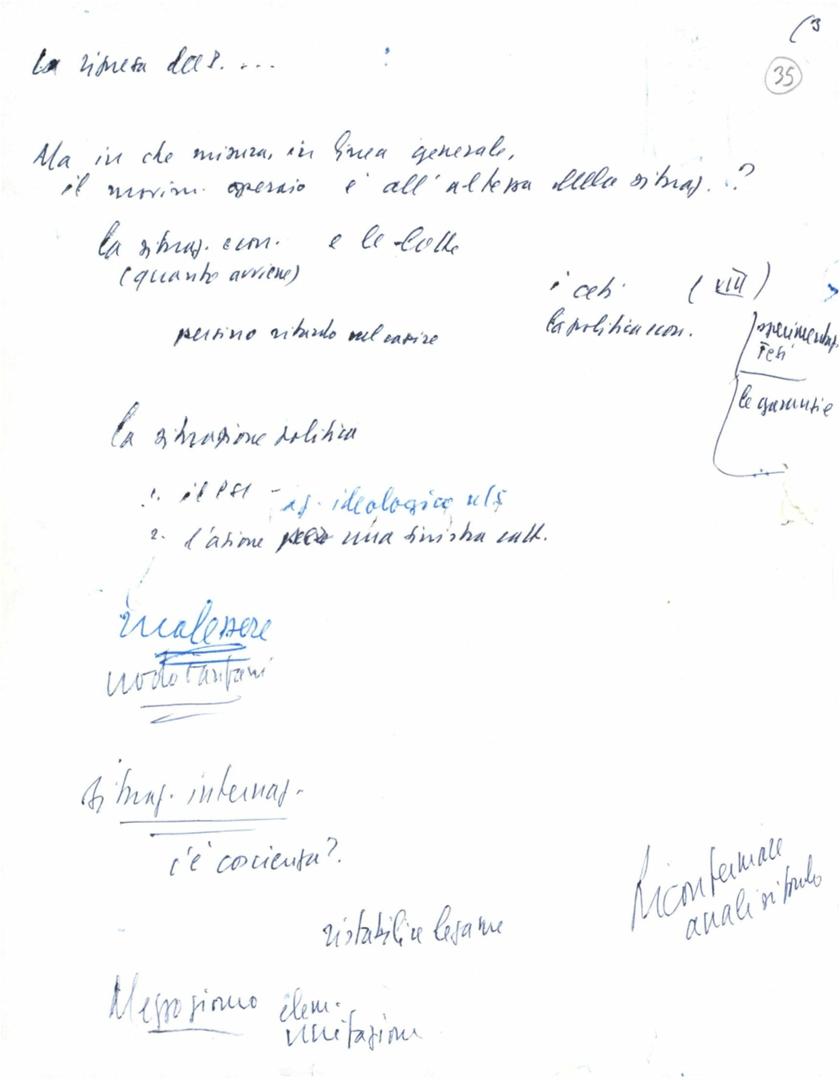 (3
35
La ripresa del P. ...
Ma in che misura, in linea generale,
il movim. operaio è all'altezza della situaz. ?
la situaz. econ. e le lotte
(quanto avviene)
i ceti (XIII)
la politica econ.
persino ritardo nel capire
Tesi
le garanzie
la situazione politica
1. il PSI - ideologico
2. l'azione una sinistra catt.
malessere
nodo Fanfani
situaz. internaz.
c'è coscienza?
Riconfermare
analisi
ristabilire legame
Mezzogiorno elem.
unificazione